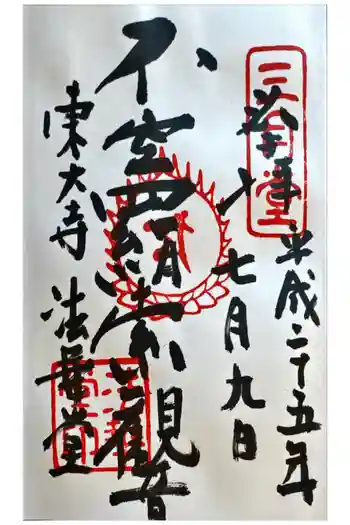 奉拝 平成二十五年
七月九日
不空羂索観音
東大寺 法華堂
三月堂